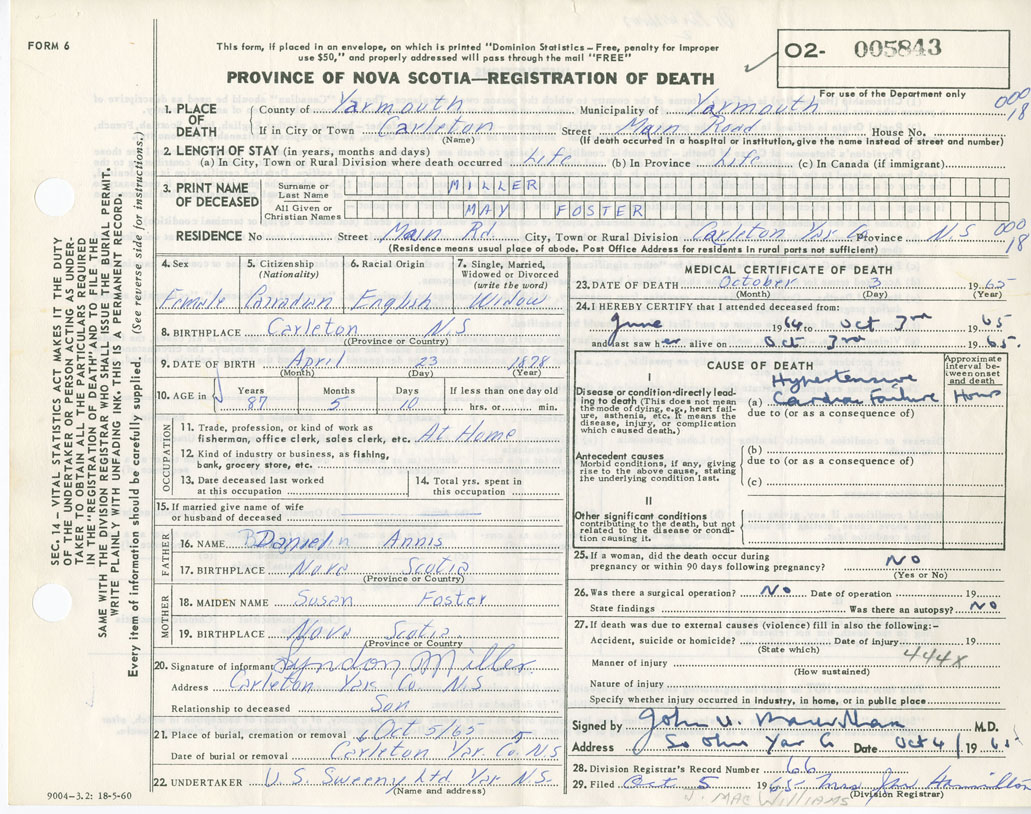 FORM 6
This form, if placed in an envelope, on which is printed "Dominion Statistics – Free, penalty for improper
use $50," and properly addressed will pass through the mail "FREE"
O2- 005843
For use of the Department only
PROVINCE OF NOVA SCOTIA—REGISTRATION OF DEATH
000
18
1. PLACE OF DEATH County of Yarmouth Municipality of Yarmouth
If in City or Town Carleton Street Main Road House No.
(Name) (If death occurred in a hospital or institution, give the name instead of street and number)
2. LENGTH OF STAY (in years, months and days)
(a) In City, Town or Rural Division where death occurred Life (b) In Province Life (c) In Canada (if immigrant)
3. PRINT NAME OF DECEASED Surname or Last Name MILLER
All Given or Christian Names MAY FOSTER
RESIDENCE No Street Main Rd. City, Town or Rural Division Carleton Yar Co Province N S
000
18
(Residence means usual place of abode. Post Office Address for residents in rural parts not sufficient)
4. Sex 5. Citizenship (Nationality) 6. Racial Origin 7. Single, Married, Widowed or Divorced (write the word)
Female Canadian English Widow
8. BIRTHPLACE Carleton N.S
(Province or Country)
9. DATE OF BIRTH April 23 1878
(Month) (Day) (Year)
10. AGE in Years Months Days If less than one day old
87 5 10 hrs. or min.
OCCUPATION
11. Trade, profession or kind of work as
fisherman, office clerk, sales clerk, etc. At Home
12. Kind of industry or business, as fishing,
bank, grocery store, etc.
13. Date deceased last worked
at this occupation
14. Total yrs. spent in
this occupation
15. If married give name of wife
or husband of deceased
FATHER
16. NAME Annis
17. BIRTHPLACE Nova Scotia
(Province or Country)
MOTHER
18. MAIDEN NAME Susan Foster
19. BIRTHPLACE Nova Scotia
(Province or Country)
20. Signature of informant Lyndon Miller
Address Carleton Yar. Co. N.S
Relationship to deceased Son
21. Place of burial, cremation or removal Oct 5/65
Date of burial or removal Carleton Yar. Co. N.S
22. UNDERTAKER V.S. Sweeny Ltd Yar N.S.
(Name and address)
9004-3.2: 18-5-60
MEDICAL CERTIFICATE OF DEATH
23. DATE OF DEATH October 3 1965
(Month) (Day) (Year)
24. I HEREBY CERTIFY that I attended deceased from:
June 1964 to Oct 3rd 1965
and last saw her alive on Oct 3rd 1965.
CAUSE OF DEATH
Approximate interval between onset and death
I
Disease or condition directly leading to death (This does not mean the mode of dying, e.g., heart failure, asthenia, etc. It means the disease, injury, or complication which caused death.)
Hypertensive
(a) Cardiac Failure Hours
due to (or as a consequence of)
Antecedent causes
Morbid conditions, if any, giving rise to the above cause, stating the underlying condition last.
(b)
due to (or as a consequence of)
(c)
II
Other significant conditions
contributing to the death, but not related to the disease or condition causing it.
25. If a woman, did the death occur during
pregnancy or within 90 days following pregnancy? NO
(Yes or No)
26. Was there a surgical operation? No Date of operation 19
State findings Was there an autopsy? No
27. If death was due to external causes (violence) fill in also the following:–
Accident, suicide or homicide? Date of injury 19
(State which) 444X
Manner of injury
(How sustained)
Nature of injury
Specify whether injury occurred in industry, in home, or in public place
Signed by M.D.
Address So Ohio Yar Co Date Oct 4/ 1965
28. Division Registrar's Record Number 66
29. Filed Oct 5 1965 Mrs Jas Hamilton
(Division Registrar)
J. MACWILLIAMS
SEC. 14 – VITAL STATISTICS ACT MAKES IT THE DUTY
OF THE UNDERTAKER OR PERSON ACTING AS UNDER-
TAKER TO OBTAIN ALL THE PARTICULARS REQUIRED
IN THE "REGISTRATION OF DEATH" AND TO FILE THE
SAME WITH THE DIVISION REGISTRAR WHO SHALL ISSUE THE BURIAL PERMIT.
WRITE PLAINLY WITH UNFADING INK. THIS IS A PERMANENT RECORD.
Every item of information should be carefully supplied. (See reverse side for instructions.)